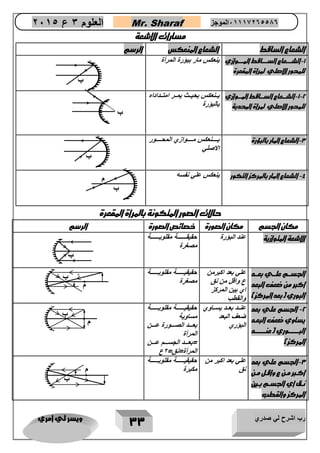 الموجز ٠١١١٧٢٦٥٥٨٦
Mr. Sharaf
العلوم ٣ ع ٢٠١٥
مسارات الأشعة
الشعاع الساقط
الشعاع المنعكس
الرسم
١- الشـعـاع السـاقـط المـوازي للمحور الأصلي لمرآة المقعرة
ينعكس مار ببؤرة المرآة
ب
١-٢ الشعـاع الساقـط المـوازي للمحور الأصلي لمرآة المحدبة
ينعكس بحيث يمر امتداداه بالبؤرة
ب
٣- الشعاع المار بالبؤرة
ينعكس موازي المحور الاصلي
ب
٤- الشعاع المار بالمركز التكور
ينعكس علي نفسه
م
ب
حالات الصور المتكونة بالمرآة المقعرة
مكان الجسم
مكان الصورة
خصائص الصورة
الرسم
الأشعة المتوازية
عند البؤرة
حقيقية مقلوبة
مصغرة
الجسم علي بعد
أكبر من ضعف البعد
البؤري ( بعد المركز )
علي بعد اكبرمن
ع واقل من نق
اي بين المركز
والقطب
حقيقية مقلوبة
مصغرة
م
ب
٢- الجسم علي بعد
يساوي ضعف البعد
البؤري ( عند
المركز )
عند بعد يساوي
ضعف البعد
البؤري
حقيقية مقلوبة
مساوية
بعد الصورة عن
المرآة
=بعد الجسم عن
المرآة=نق=٢ع
م
ب
٣- الجسم علي بعد
أكبر من ع وأقل من
نق أي الجسم بين
المركز والقطب
علي بعد اكبر من
نق
حقيقية مقلوبة
مكبرة
م
ب
رب اشرح لي صدري
٣٣
ويسر لي أمري